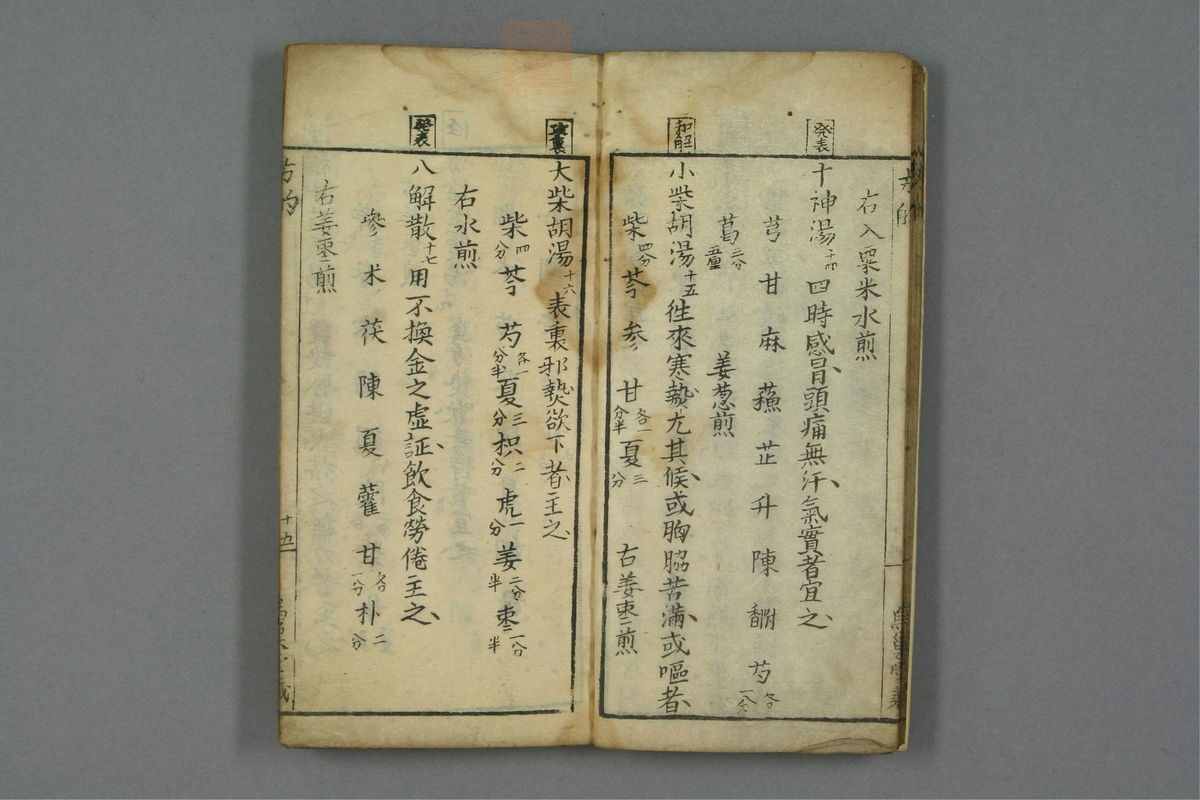 右入粟米水煎
発表
十神湯十四四時感冒頭痛無汗氣實者宜之
芎甘麻蘓芷升陳䪻芍各一分
葛二分五厘 姜葱煎
和解
小柴胡湯十五徃來寒𤍠尤其候或胸脇苦満或嘔者
柴四分芩参甘各一分半夏三分 右姜棗煎
攻裏
大柴胡湯十六表裏邪𤍠欲下者主之
柴四分芩芍各一分半夏三分枳二分虎一分姜二分半棗一分半
右水煎
発表
八解散十七用不換金之虚証飲食勞倦主之
參朮茯陳夏藿甘各一分朴二分
右姜棗煎
十五